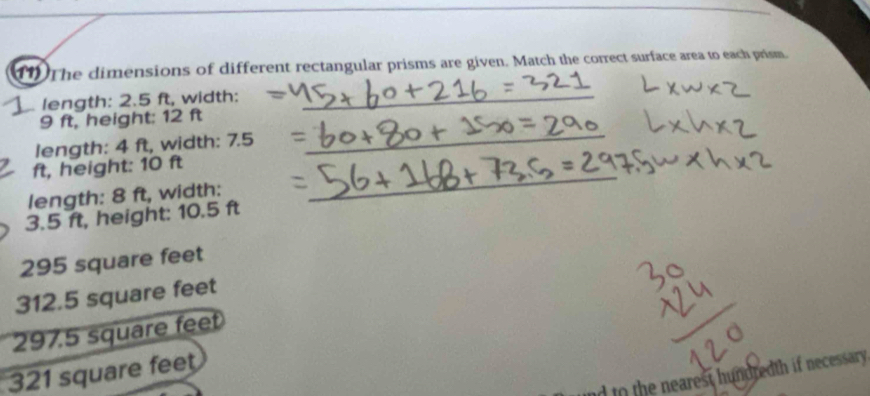 The dimensions of different rectangular prisms are given. Match the correct surface area to each prism.
1 length: 2.5 ft, width: 9 ft, height: 12 ft
= 45 + 60 + 216 = 321 L x w x 2
2 length: 4 ft, width: 7.5 ft, height: 10 ft
= 60 + 80 + 150 = 290 L x h x 2
length: 8 ft, width: 3.5 ft, height: 10.5 ft
= 56 + 168 + 73.5 = 297.5 w x h x 2
295 square feet
312.5 square feet
297.5 square feet
321 square feet
30
x24
120
to the nearest hundredth if necessary.